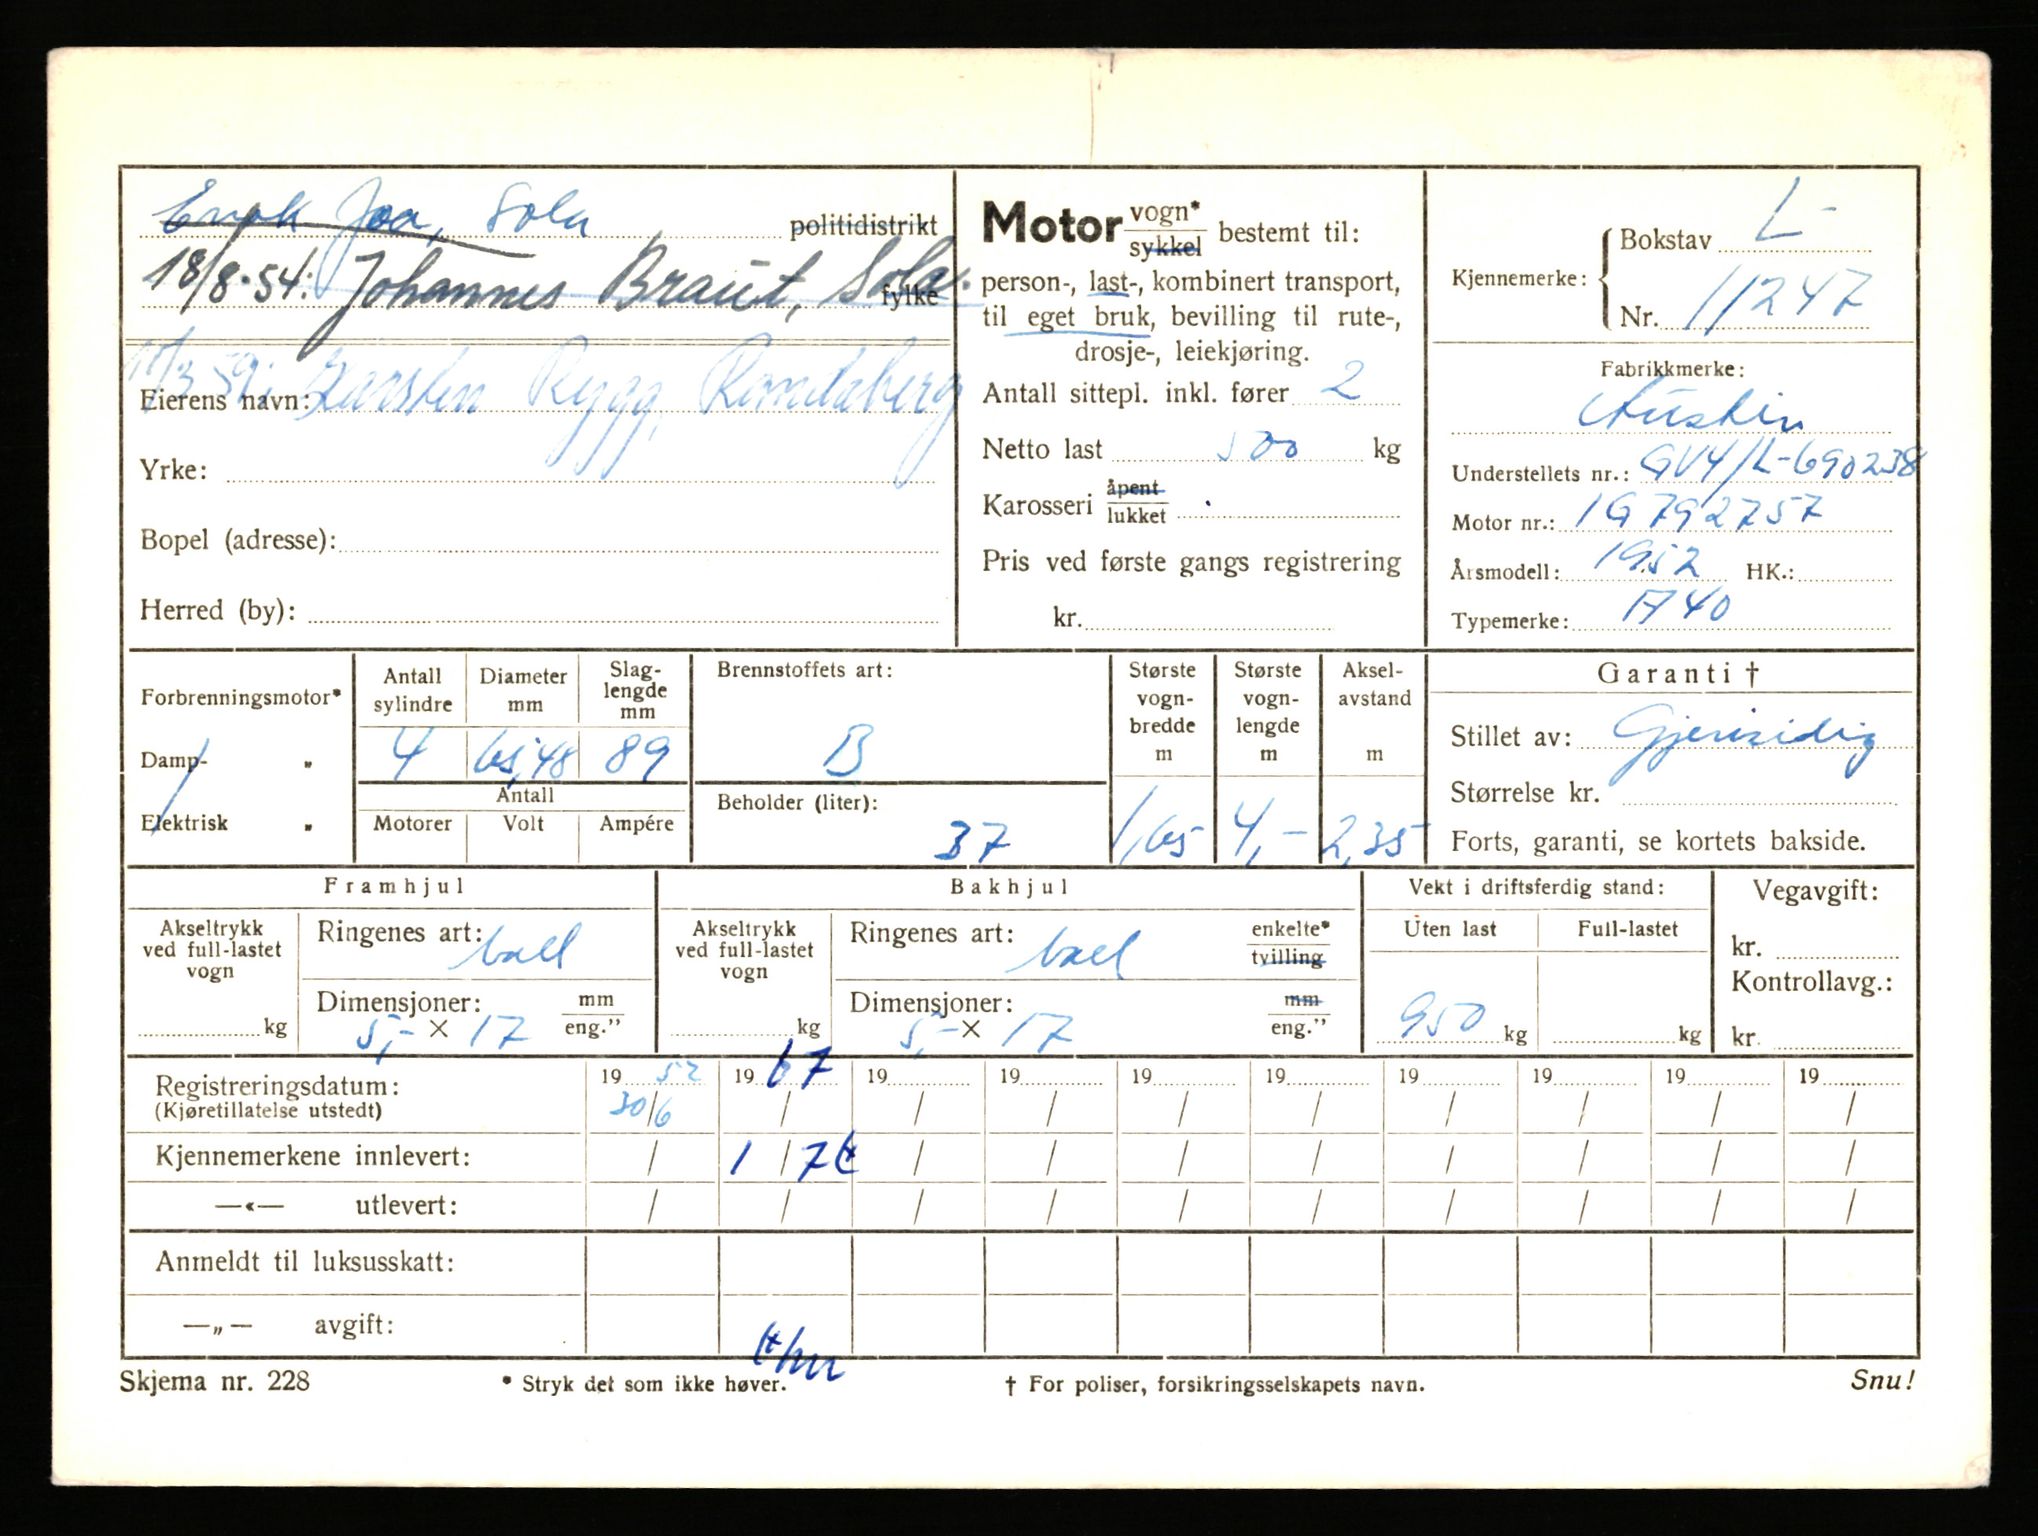 Enok Joa, Sola politidistrikt
18/8-54: Johannes Braut, Sola. fylke
11/3 59: Karsten Rygg, Randaberg
Eierens navn:
Yrke:
Bopel (adresse):
Herred (by):
Motor vogn* sykkel bestemt til:
person-, last-, kombinert transport,
til eget bruk, bevilling til rute-,
drosje-, leiekjøring.
Antall sittepl. inkl. fører 2
Netto last 500 kg
Karosseri åpent lukket
Pris ved første gangs registrering
kr.
Kjennemerke: Bokstav L-
Nr. 11247
Fabrikkmerke:
Austin
Understellets nr.: GV4/L-690238
Motor nr.: 1G792757
Årsmodell: 1952 HK.:
Typemerke: A40
Forbrenningsmotor*
Damp- „
Elektrisk „
Antall sylindre
4
Diameter mm
65,48
Slag-lengde mm
89
Antall
Motorer Volt Ampére
Brennstoffets art:
B
Beholder (liter):
37
Største vogn-bredde m
1,65
Største vogn-lengde m
4,-
Aksel-avstand m
2,35
Garanti †
Stillet av: Gjensidig
Størrelse kr.
Forts, garanti, se kortets bakside.
Framhjul
Akseltrykk ved full-lastet vogn
kg
Ringenes art: ball
Dimensjoner: mm eng.”
5,- × 17
Bakhjul
Akseltrykk ved full-lastet vogn
kg
Ringenes art: ball enkelte* tvilling
Dimensjoner: mm eng.”
5,- × 17
Vekt i driftsferdig stand:
Uten last Full-lastet
950 kg kg
Vegavgift:
kr.
Kontrollavg.:
kr.
Registreringsdatum: 19 52 19 67 19 19 19 19 19 19 19 19
(Kjøretillatelse utstedt) 30/6 / / / / / / / / /
Kjennemerkene innlevert: / 1/7 / / / / / / / /
—«— utlevert: / / / / / / / / / /
Anmeldt til luksusskatt:
—„— avgift:
Skjema nr. 228
* Stryk det som ikke høver.
† For poliser, forsikringsselskapets navn.
Snu!